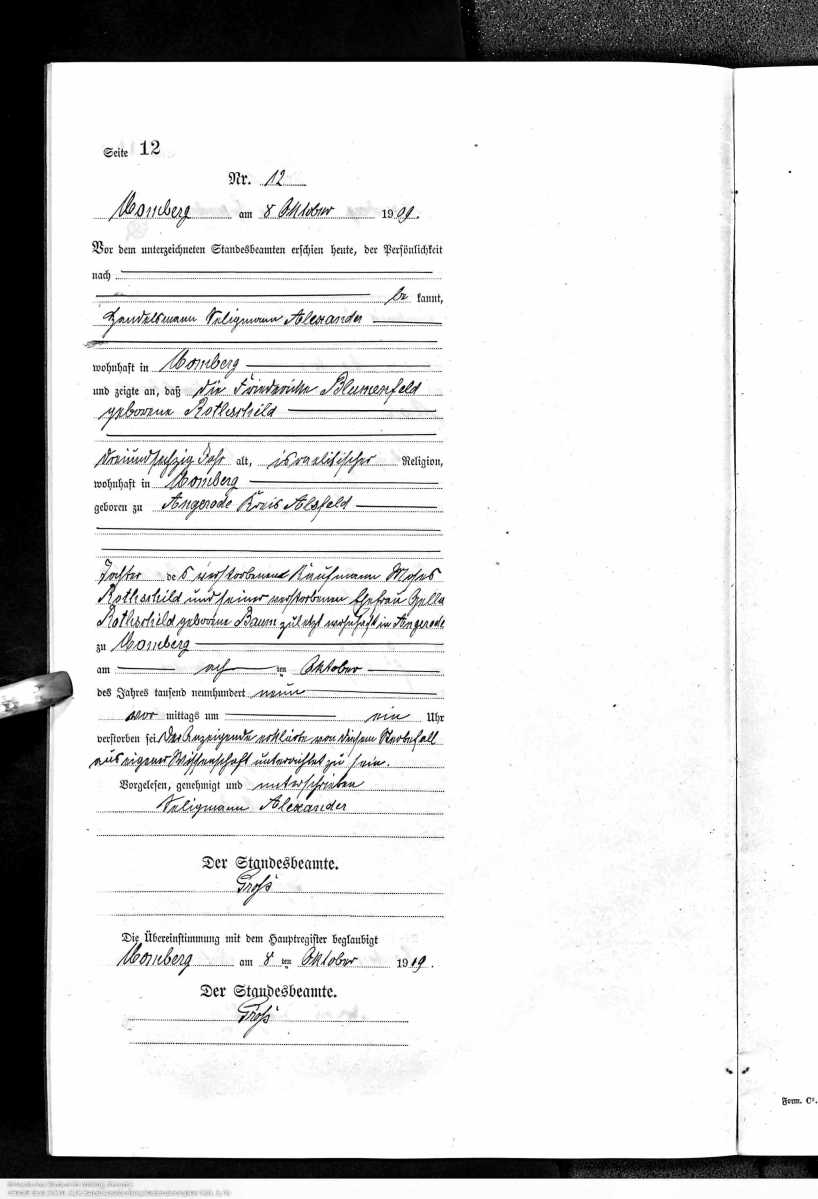 Seite 12
Nr. 12
Momberg am 8 Oktober 1909.
Vor dem unterzeichneten Standesbeamten erschien heute, der Persönlichkeit
nach
be kannt,
Handelsmann Seligmann Alexander
wohnhaft in Momberg
und zeigte an, daß die Friedericke Blumenfeld
geborene Rothschild
dreiundsechzig Jahr alt, israelitischer Religion,
wohnhaft in Momberg
geboren zu Angerode Kreis Alsfeld
Tochter des verstorbenen Kaufmann Moses
Rothschild und seiner verstorbenen Ehefrau Gella
Rothschild geborene Baum zuletzt wohnhaft in Angerode
zu Momberg
am ach ten Oktober
des Jahres tausend neunhundert neun
vor mittags um ein Uhr
verstorben sei. Der Anzeigende erklärte von diesem Sterbefall
aus eigener Wissenschaft unterrichtet zu sein.
Vorgelesen, genehmigt und unterschrieben
Seligmann Alexander
Der Standesbeamte.
Groß
Die Übereinstimmung mit dem Hauptregister beglaubigt
Momberg am 8 ten Oktober 1909.
Der Standesbeamte.
Groß
Form. C